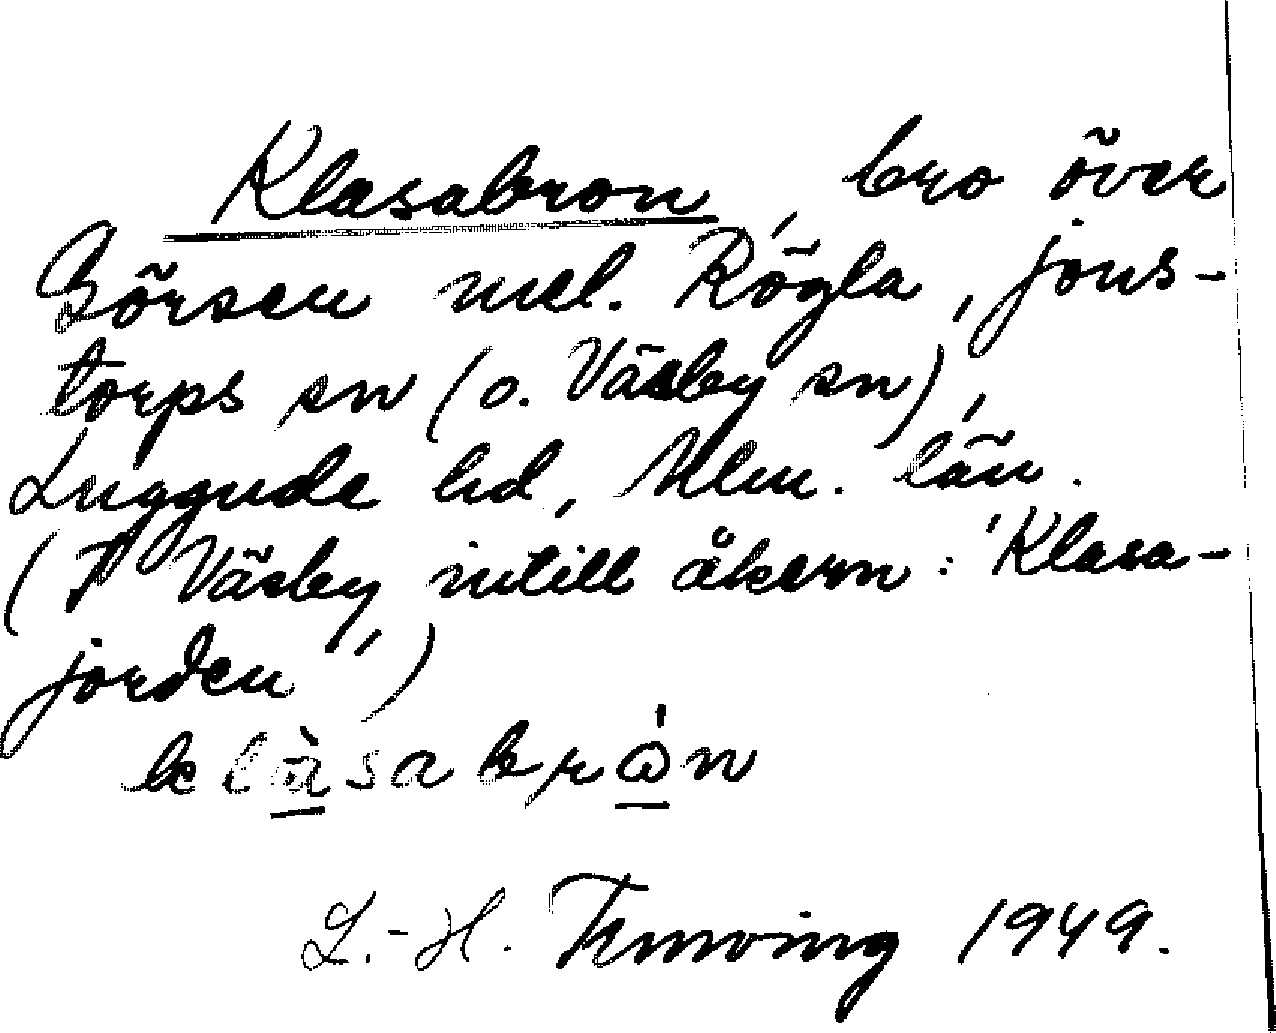 Klasabron, bro över
Görsen mel. Rögla, Jons-
torps sn (o. Väsby sn),
Luggude hd, Mlm. län.
(I Väsby intill åkern: "Klasa-
jorden")
klàsabrón
L.-H. 1949.